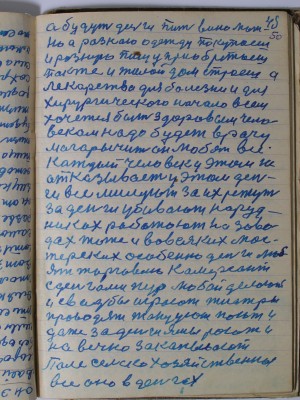 а будут деньги пит вино мож 45
но а разною одежду покупаем 50
и розную пищу приобретаем
также и жилой дом строеш а
лекарства для болезни и для
хирургического начало всем
хочется быть здоровым чело
веком надо будет врачу
магарычит он любят все.
каждый человек у этом не
отказивает у этом ден-
ги все милиют за их режут
за денги убивают на руд-
никах работают на заво-
дах тоже и во всяких мас-
терских особенно денги люб
ят торговлю каждой
с денгами пир любой делает
и свадьбы играют театры
проводят танцуют поют и
даже за денги ямы роют и
на вечно закапывают
Поле сельско хозяйственное
все оно в деньгах